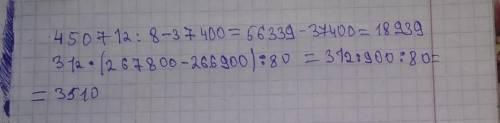 450712:8-37400=56339-37400=18939
312•(267800-266900):80=312:900:80=
=3510